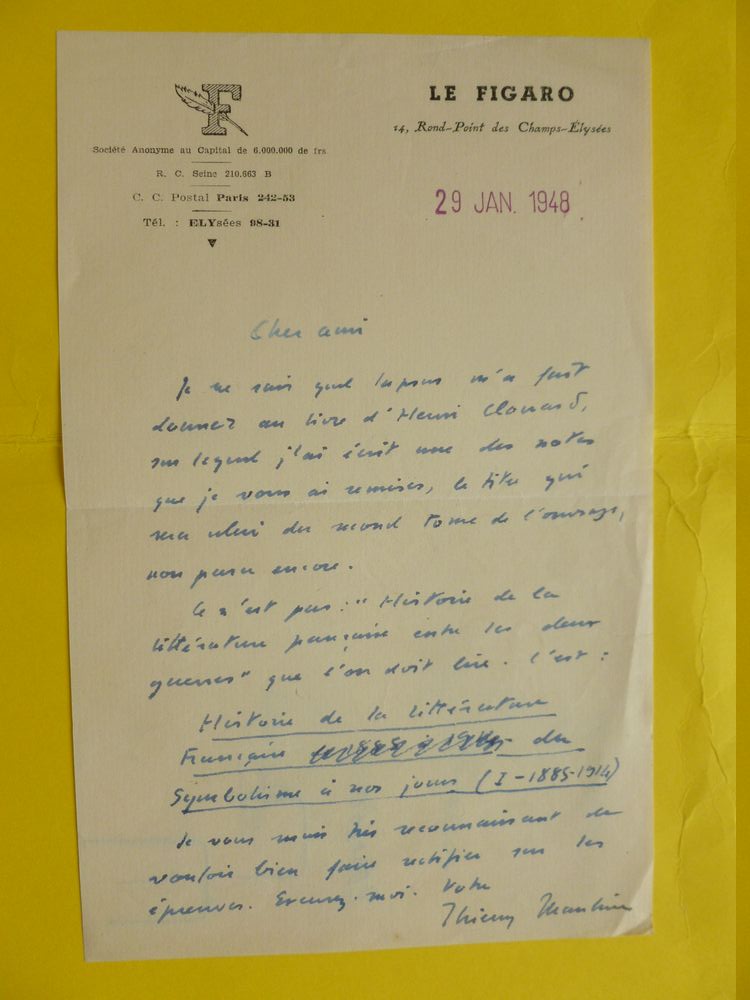 F
Société Anonyme au Capital de 6.000.000 de frs
R. C. Seine 210.663 B
C. C. Postal Paris 242-53
Tél. : ELYsées 98-31
LE FIGARO
14, Rond-Point des Champs-Élysées
29 JAN. 1948
Cher ami
Je ne sais quel lapsus m'a fait
donner au livre d'Henri Clouard,
sur lequel j'ai écrit une des notes
que je vous ai remises, le titre qui
sera celui du second tome de l'ouvrage,
non paru encore.
Ce n'est pas : "Histoire de la
littérature française entre les deux
guerres" que l'on doit lire. C'est :
Histoire de la littérature
Française du
Symbolisme à nos jours (I-1885-1914)
Je vous serais très reconnaissant de
vouloir bien faire rectifier sur les
épreuves. Excusez-moi. Votre
Thierry Maulnier